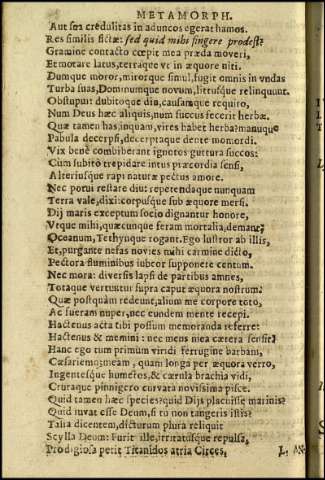 METAMORPH.
Aut ſua credulitas in aduncos egerat hamos.
Res ſimilis fictæ: ſed quid mihi fingere prodeſt?
Gramine contacto cœpit mea præda moveri,
Et motare latus, terraque vt in æquore niti.
Dumque moror, mirorque ſimul, fugit omnis in vndas
Turba ſuas, Dominumque novum, littuſque relinquunt.
Obſtupui dubitoque diu, cauſamque requiro,
Num Deus hæc aliquis, num ſuccus fecerit herbæ.
Quæ tamen has, inquam, vires habet herba? manuque
Pabula decerpſi, decerptaque dente momordi.
Vix bene combiberant ignotos guttura ſuccos:
Cum ſubito trepidare intus præcordia ſenſi,
Alteriuſque rapi naturæ pectus amore.
Nec potui reſtare diu: repetendaque nunquam
Terra vale, dixi: corpuſque ſub æquore merſi.
Dij maris exceptum ſocio dignantur honore,
Vtque mihi, quæcunque feram mortalia, demant?
Oceanum, Tethynque rogant. Ego luſtror ab illis,
Et, purgante nefas novies mihi carmine dicto,
Pectora fluminibus iubeor ſupponere centum.
Nec mora: diverſis lapſi de partibus amnes,
Totaque vertuntur ſupra caput æquora noſtrum.
Quæ poſtquàm redeunt, alium me corpore toto,
Ac fueram nuper, nec eundem mente recepi.
Hactenus acta tibi poſſum memoranda referre:
Hactenus & memini: nec mens mea cætera ſenſit?
Hanc ego tum primùm viridi ferrugine barbam,
Cæſariemque meam, quam longa per æquora verro,
Ingenteſque humeros, & cærula brachia vidi,
Cruraque pinnigero curvata noviſſima piſce.
Quid tamen hæc ſpecies? quid Dijs placuiſſe marinis?
Quid iuvat eſſe Deum, ſi tu non tangeris iſtis?
Talia dicentem, dicturum plura reliquit
Scylla Deum: Furit ille, irritatuſque repulſa,
Prodigioſa petit Titanidos atria Circes,
L. AN-